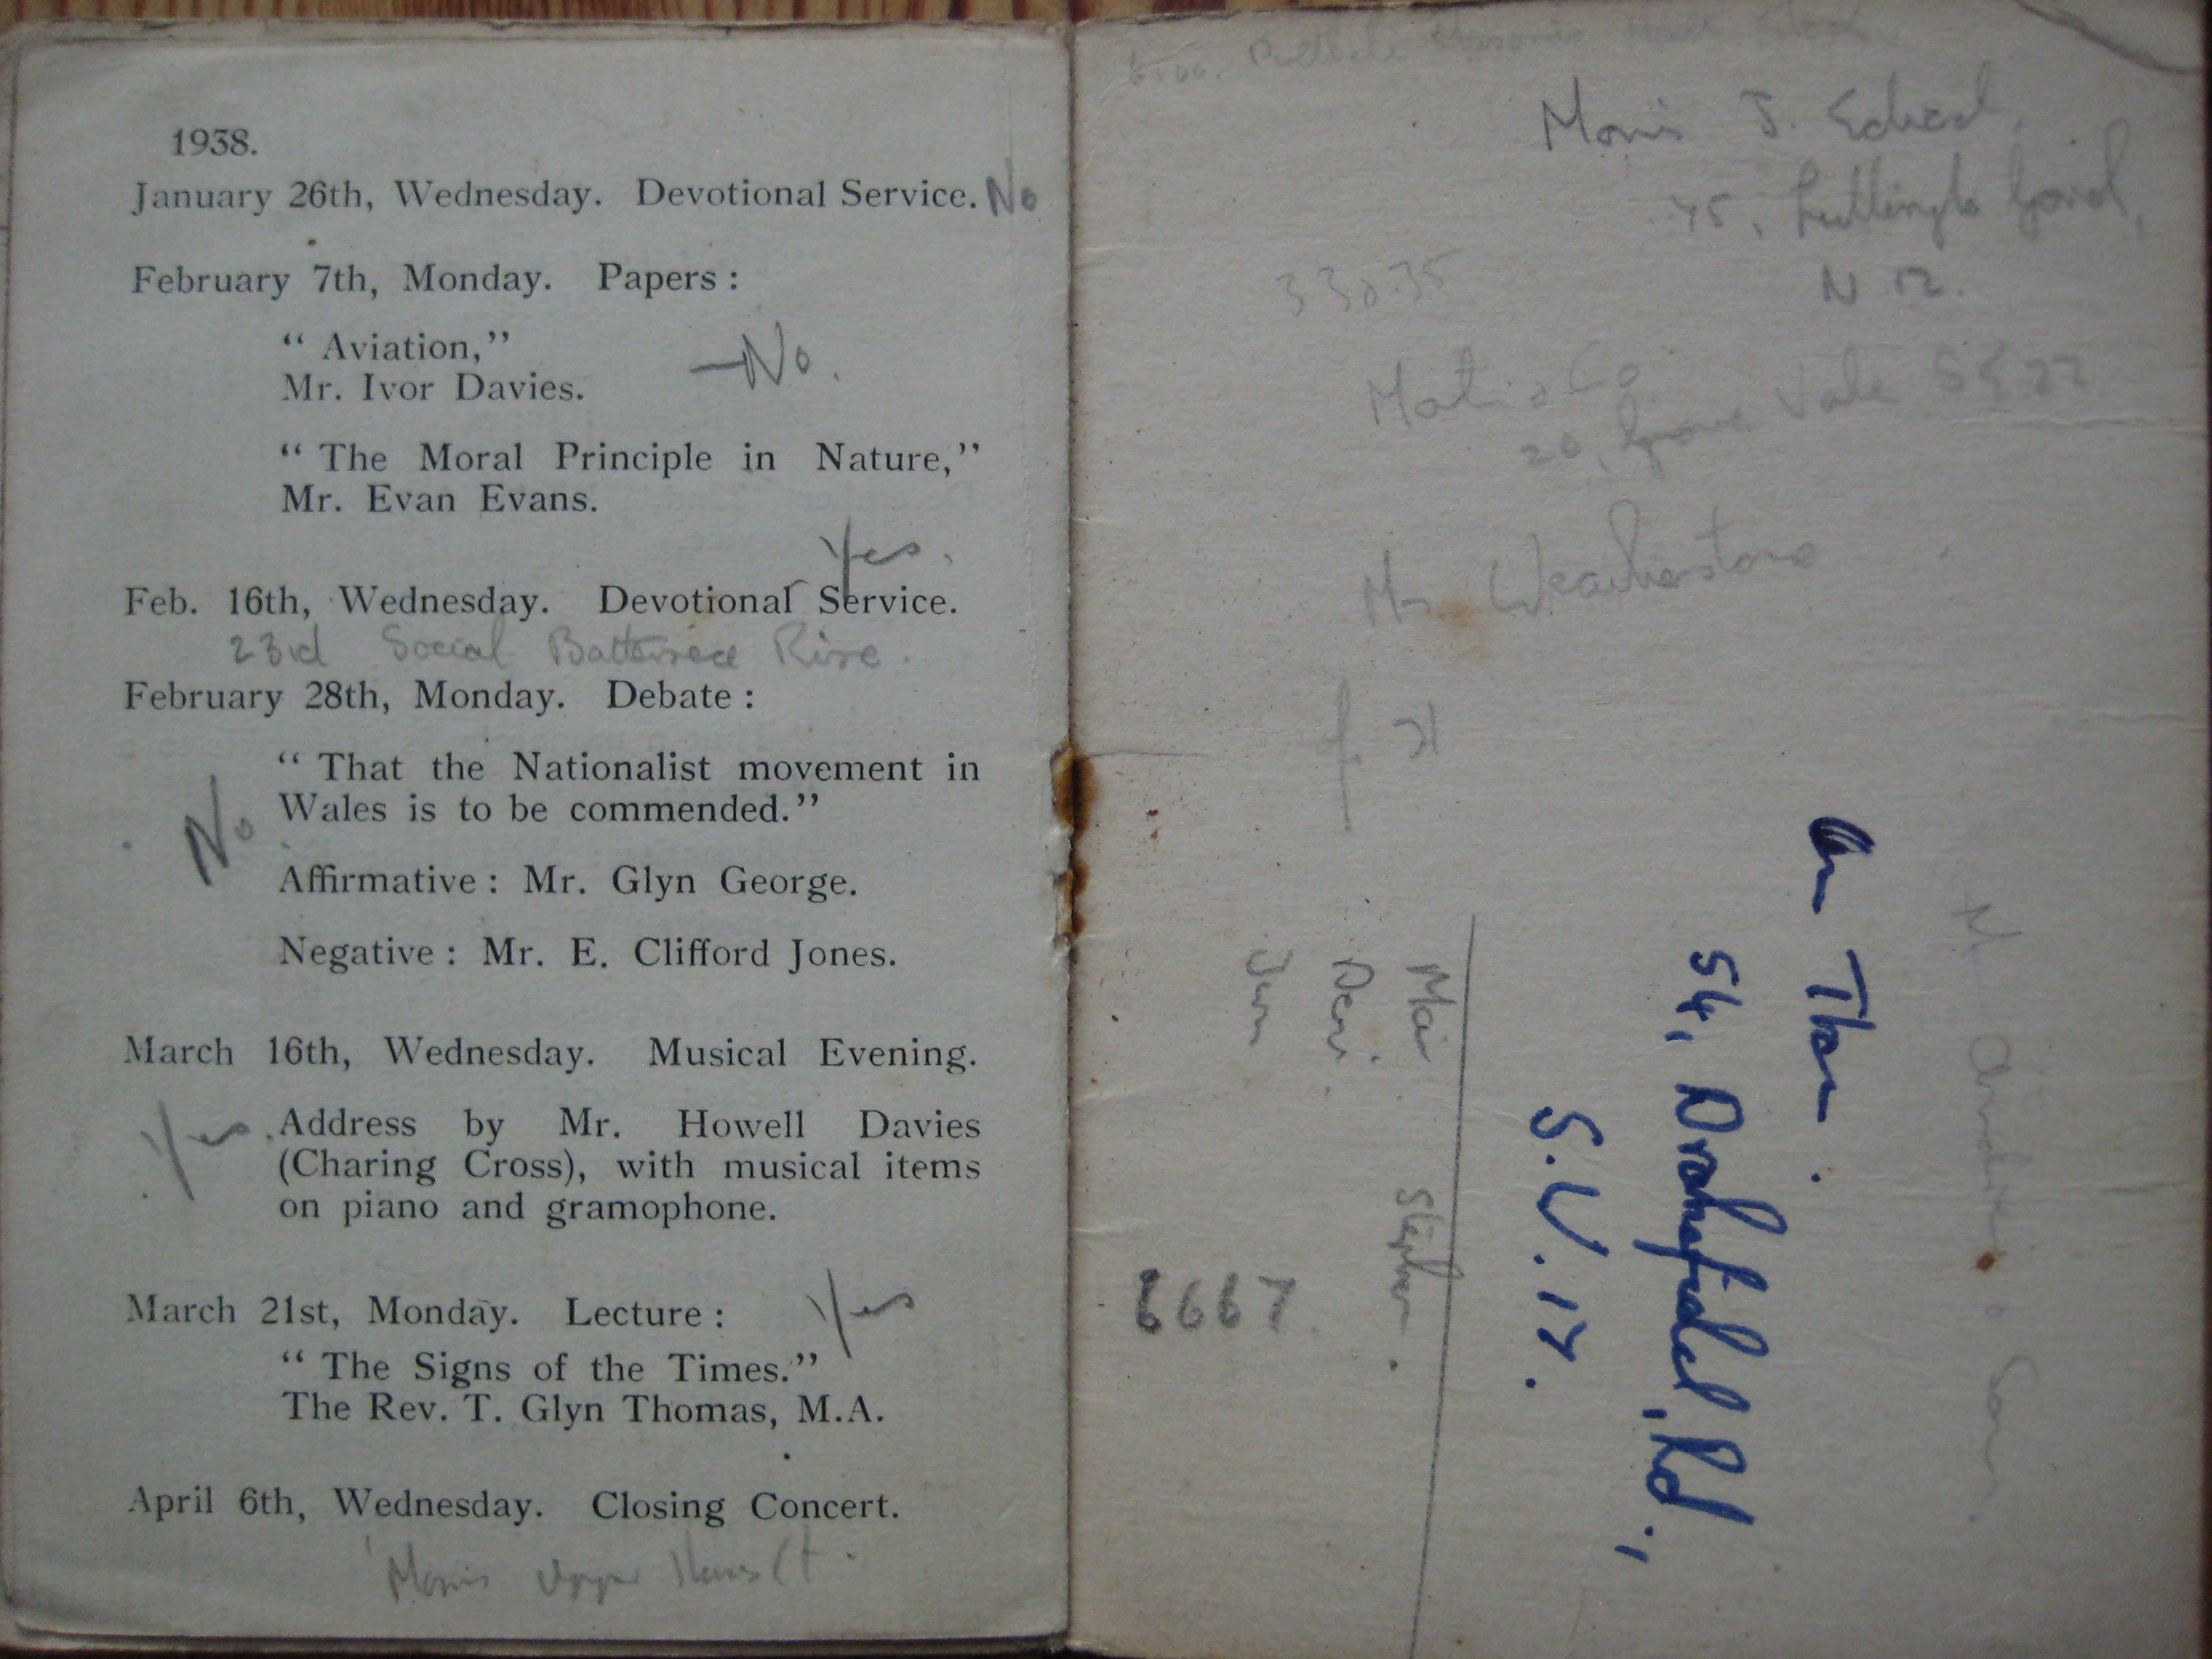 1938.
January 26th, Wednesday. Devotional Service. No
February 7th, Monday. Papers :
“ Aviation,”
Mr. Ivor Davies.
—No.
“ The Moral Principle in Nature,”
Mr. Evan Evans.
Yes.
Feb. 16th, Wednesday. Devotional Service.
23rd Social Battersea Rise.
February 28th, Monday. Debate :
“ That the Nationalist movement in
Wales is to be commended.”
No
Affirmative : Mr. Glyn George.
Negative : Mr. E. Clifford Jones.
March 16th, Wednesday. Musical Evening.
Yes.
Address by Mr. Howell Davies
(Charing Cross), with musical items
on piano and gramophone.
March 21st, Monday. Lecture : Yes
“ The Signs of the Times.”
The Rev. T. Glyn Thomas, M.A.
April 6th, Wednesday. Closing Concert.
Morris
Morris J.
45,
N 12.
33035
20, Grove Vale SE 22
Mr Weatherstone
54, Drakefield Rd.,
S.W.17.
Mair Stephen.
6667